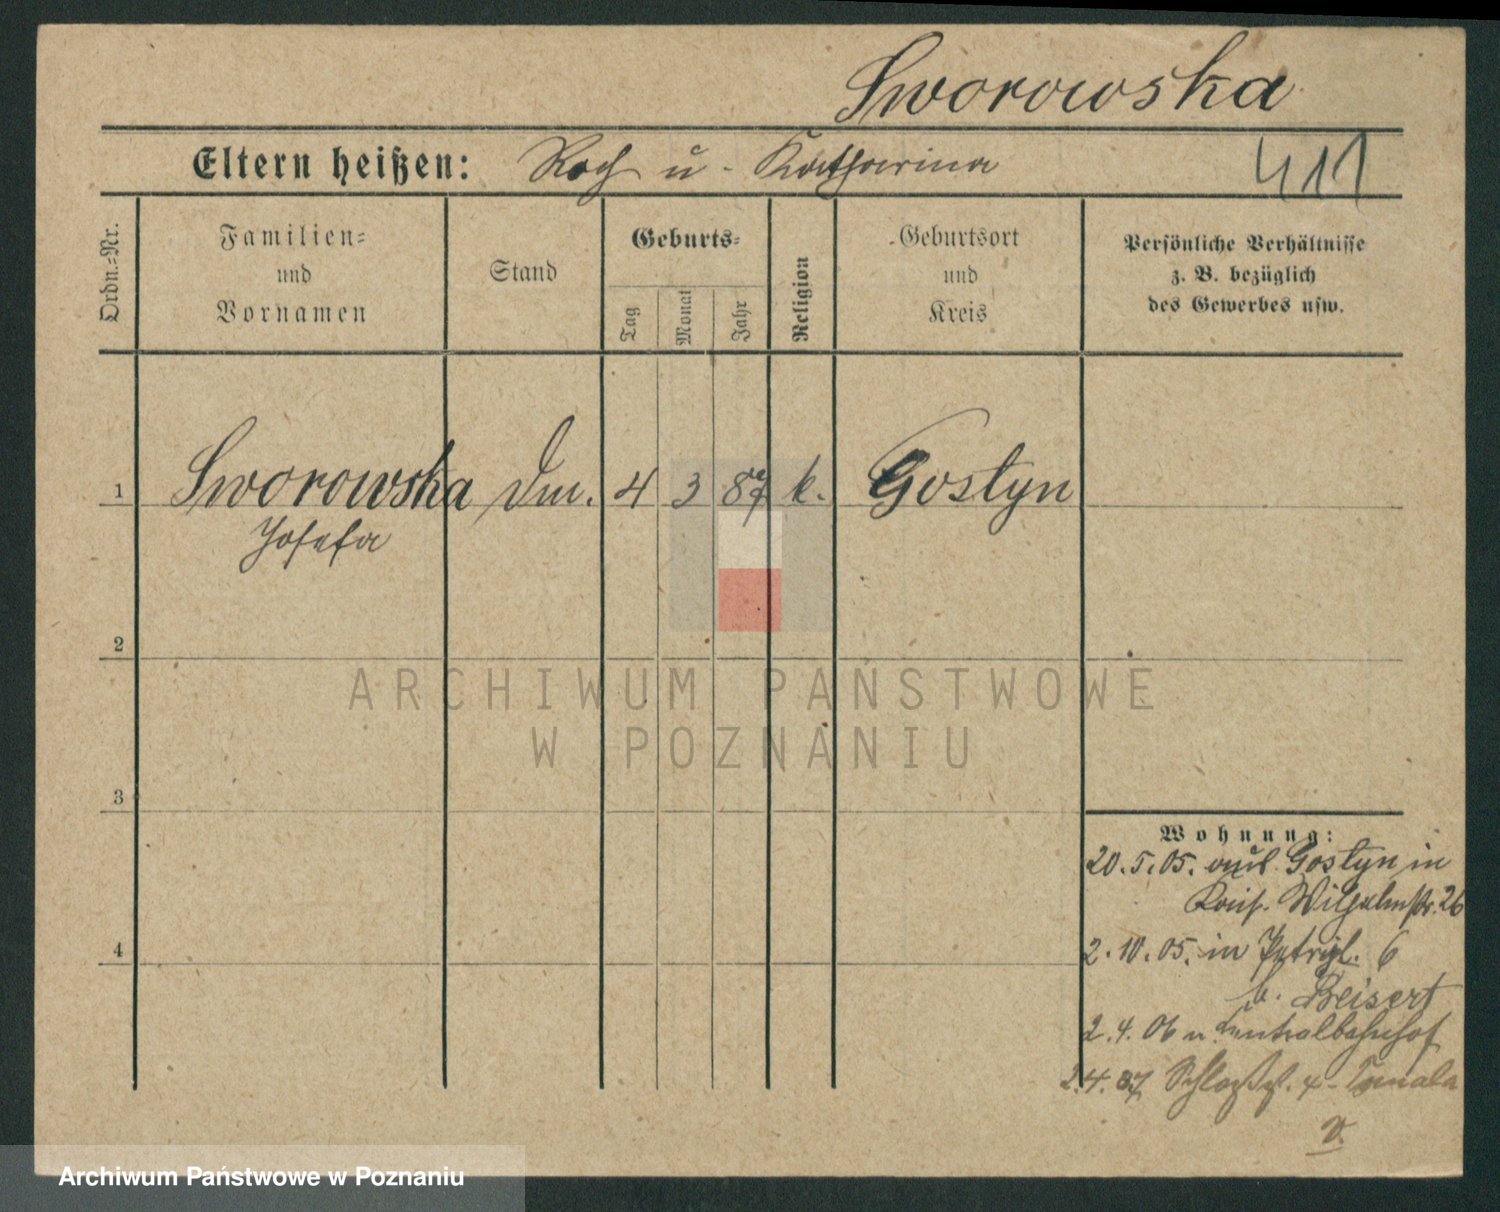 Sworowska
Eltern heißen: Roch u. Katharina
411
Ordn.-Nr.
Familien-
und
Vornamen
Stand
Geburts-
Tag
Monat
Jahr
Religion
Geburtsort
und
Kreis
Persönliche Verhältnisse
z. B. bezüglich
des Gewerbes usw.
1 Sworowska Dm. 4 3 87 k. Gostyn
Josefa
2
3
4
ARCHIWUM PAŃSTWOWE
W POZNANIU
Wohnung:
20.5.05. aus Gostyn in
Wilhelmstr. 26
2.10.05. in Petripl. 6
b. Beisert
2.4.06 n. Centralbahnhof
2.4.07
Archiwum Państwowe w Poznaniu